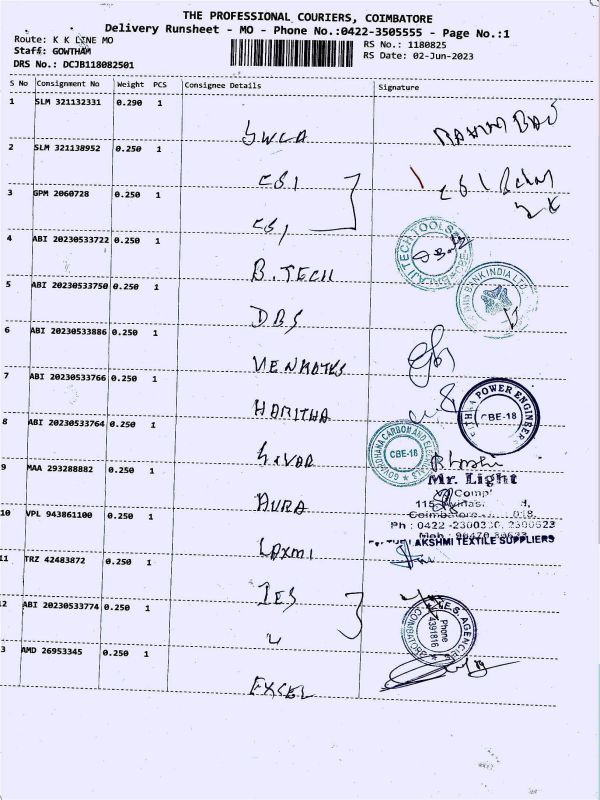 THE PROFESSIONAL COURIERS, COIMBATORE
Delivery Runsheet - MO - Phone No.:0422-3505555 - Page No.:1
Route: K K LINE MO
RS No.: 1180825
Staff: GOWTHAM
RS Date: 02-Jun-2023
DRS No.: DCJB118082501
S No Consignment No Weight PCS Consignee Details Signature
1 SLM 321132331 0.290 1
SWCA
2 SLM 321138952 0.250 1
CBI
3 GPM 2060728 0.250 1
CBI
4 ABI 20230533722 0.250 1
B.TECH
BALAJI TECH TOOLS
5 ABI 20230533750 0.250 1
BANK INDIA LTD
DBS
6 ABI 20230533886 0.250 1
VENKATES
7 ABI 20230533766 0.250 1
HARITHA
POWER ENGINEER
CBE-18
8 ABI 20230533764 0.250 1
GOVARDHANA CARBON AND
CBE-18
9 MAA 293288882 0.250 1
Mr. Light
AURA
10 VPL 943861100 0.250 1
Ph : 0422 -2300330,
LAKSHMI TEXTILE SUPPLIERS
LAXMI
11 TRZ 42483872 0.250 1
IES
12 ABI 20230533774 0.250 1
I.E.S. AGENCIES
Phone
4391816
3 AMD 26953345 0.250 1
EXSEL